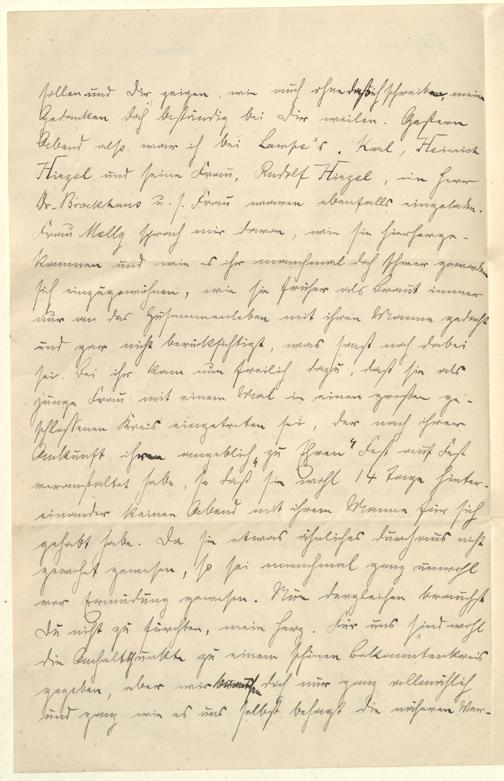 sollen und Dir zeigen, wie auch ohne daß ich schreibe, meine
Gedanken doch beständig bei Dir weilen. Gestern
Abend also war ich bei Lampe's. Karl, Heinrich
Hirzel und seine Frau, Rudolf Hirzel, ein Herr
Dr. Brockhaus u. s. Frau waren ebenfalls eingeladen.
Frau Melly sprach mir davon, wie sie hierherge-
kommen und wie es ihr manchmal doch schwer geworden
sich einzugewöhnen, wie sie früher als Braut immer
nur an das Zusammenleben mit ihrem Manne gedacht
und gar nicht berücksichtigt, was sonst noch dabei
sei. Bei ihr kam nun freilich dazu, daß sie als
junge Frau mit einem Mal in einen großen ge-
schlossenen Kreis eingetreten sei, der nach ihrer
Ankunft ihr angeblich „zu Ehren" Fest auf Fest
veranstaltet habe, so daß sie wohl 14 Tage hinter-
einander keinen Abend mit ihrem Manne für sich
gehabt habe. Da sie etwas ähnliches durchaus nicht
gewohnt gewesen, so sei manchmal ganz unwohl
vor Ermüdung gewesen. Nun dergleichen brauchst
Du nicht zu fürchten, mein Herz. Für uns sind wohl
die Anhaltspunkte zu einem schönen Bekanntenkreis
gegeben, aber wir doch nur ganz allmählich
und ganz wie es uns selbst behagt die näheren Ver-